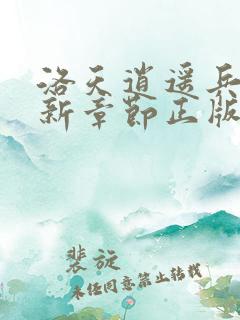 洛天逍遥兵
新章节正版
裴旋
未经同意禁止转载